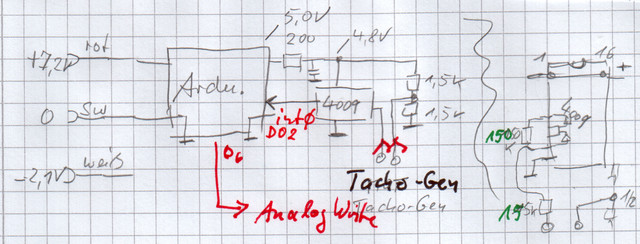 5,0V
+7,2V rot
200
4,8V
1 16
+
Ardu.
1,5k
0 sw
int0
DO2
4009
1,5k
4009
150
-2,1V weiß
D6
Tacho-Gen
Tacho-Gen
Analog Write
15k
1/2